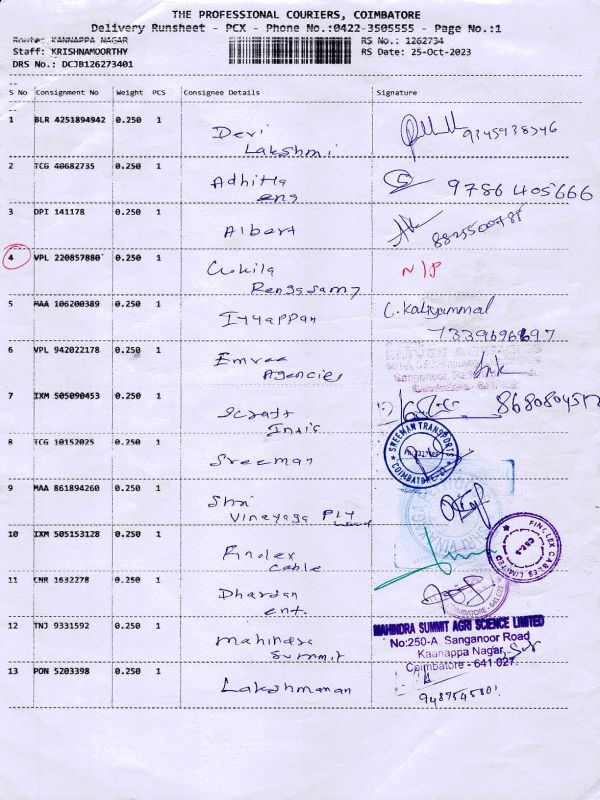 THE PROFESSIONAL COURIERS, COIMBATORE
Delivery Runsheet - PCX - Phone No.:0422-3505555 - Page No.:1
Route: KANNAPPA NAGAR
RS No.: 1262734
Staff: KRISHNAMOORTHY
RS Date: 25-Oct-2023
DRS No.: DCJB126273401
S No Consignment No Weight PCS Consignee Details Signature
1 BLR 4251894942 0.250 1 Devi
Lakshmi
9345938346
2 TCG 40682735 0.250 1 Adhitta
eng
9786405666
3 DPI 141178 0.250 1 Albert
4 VPL 220857880 0.250 1 Cokila
Rengasamy
N/P
5 MAA 106200389 0.250 1 Iyyappan
C. Kaliyammal
7339696697
6 VPL 942022178 0.250 1 Emvee
Agencies
7 IXM 505090453 0.250 1
8 TCG 10152025 0.250 1 Sreeman
SREEMAN TRANSPORTS
COIMBATORE
9 MAA 861894260 0.250 1 Shri
Vinayaga Ply
wood
10 IXM 505153128 0.250 1 Finolex
cable
FINOLEX CABLES LIMITED
11 CNR 1632278 0.250 1 Dhardan
ent.
COIMBATORE - 641 027
12 TNJ 9331592 0.250 1 Mahindra
Summit
MAHINDRA SUMMIT AGRI SCIENCE LIMITED
No:250-A Sanganoor Road
Kaanappa Nagar,
Coimbatore - 641 027.
13 PON 5203398 0.250 1 Lakshmanan
9487545801